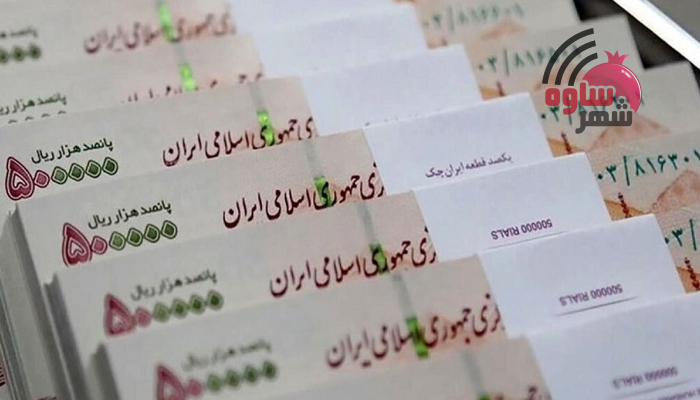 جمهوری اسلامی ایران
۰۳/۸۱۶۶۰۱
ساوه
شهر
جمهوری اسلامی ایران
پانصد هزار ریال
۵۰۰۰۰۰
جمهوری اسلامی ایران
یکصد قطعه ایران چک
۰۳/۸۱۶۳۰۱
پانصد هزار ریال
۵۰۰۰۰۰
جمهوری اسلامی ایران
500000 RIALS
پانصد هزار ریال
۵۰۰۰۰۰
جمهوری اسلامی ایران
500000 RIALS
پانصد هزار ریال
۵۰۰۰۰۰
جمهوری اسلامی ایران
500000 RIALS